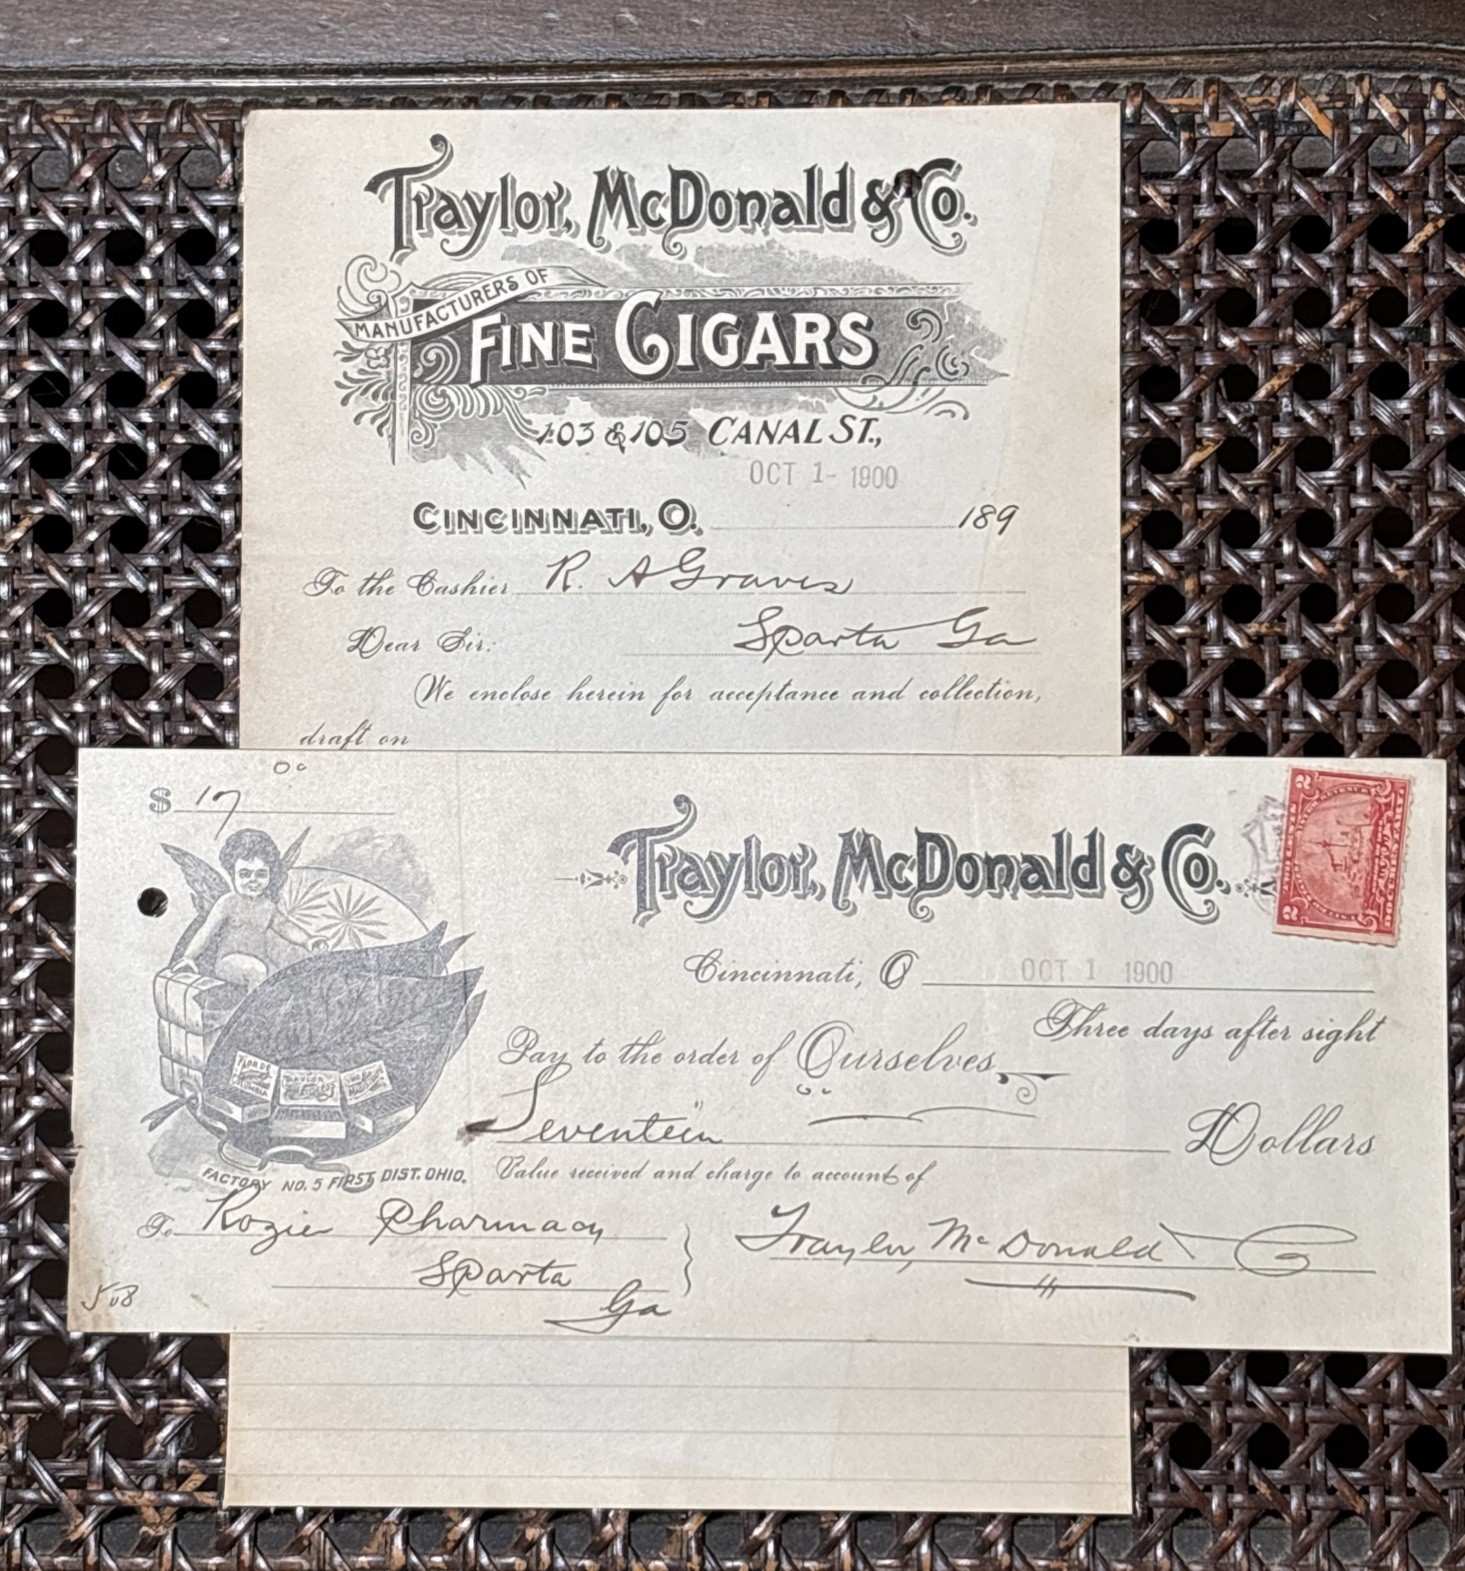 Traylor, McDonald & Co.
MANUFACTURERS OF
FINE CIGARS
103 & 105 CANAL ST.,
OCT 1- 1900
CINCINNATI, O. 189
To the Cashier R. A Graves
Dear Sir: Sparta Ga
We enclose herein for acceptance and collection,
draft on
$ 17 00
Traylor, McDonald & Co.
2 2
Cincinnati, O OCT 1 1900
Three days after sight
Pay to the order of Ourselves
Seventeen Dollars
Value received and charge to account of
FACTORY NO. 5 FIRST DIST. OHIO.
To Rozier Pharmacy
Sparta
Ga
Traylor, McDonald Co